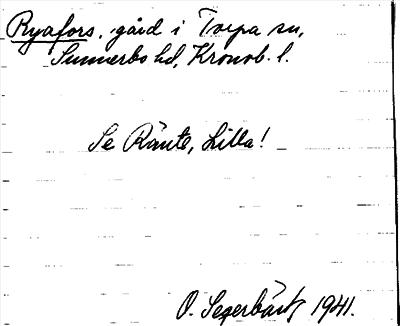 Ryafors, gård i Torpa sn,
Sunnerbo hd, Kronob. l.
Se Rånte, Lilla!
O. Segerbäck 1941.